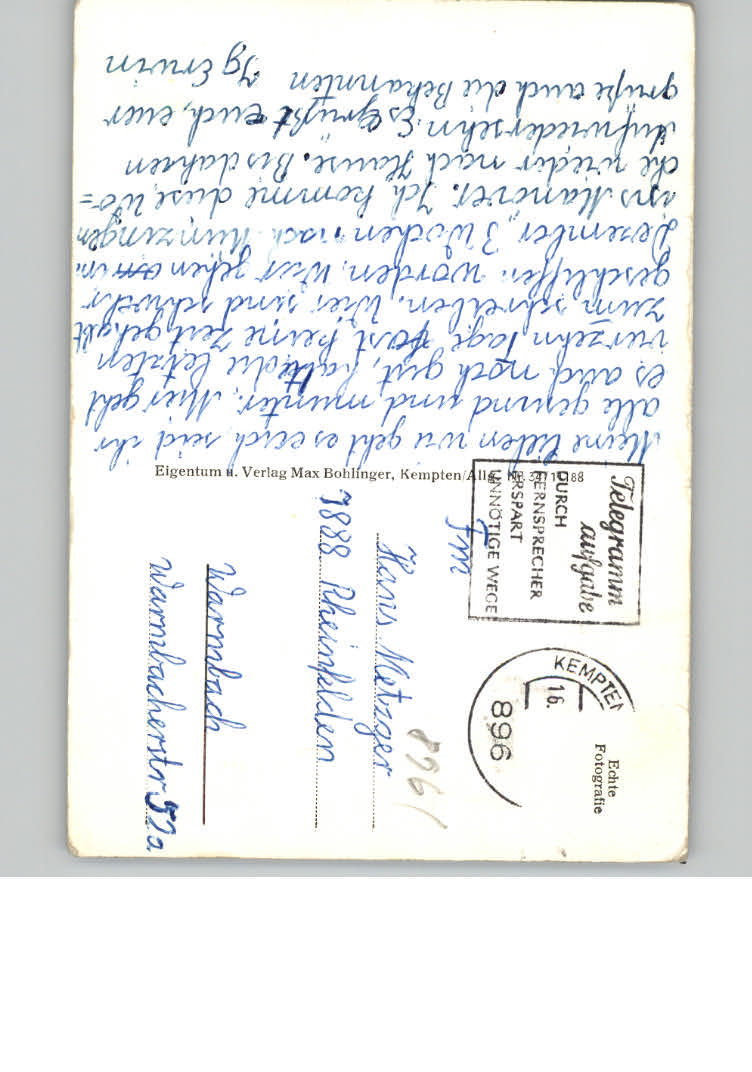 Meine lieben wie geht es euch, seid ihr
alle gesund und munter. Mier geht
es auch noch gut, hatte die letzten
vierzehn Tage fast keine Zeit gehabt
zum schreiben. Wier sind schwehr
geschliffen worden. Wier gehen im
Dezember, 3 Wochen nach Münzingen
ins Manover. Ich komme diese Wo=
che wieder nach Hause. Bis dahien
Aufwiedersehn. Es Grüßt Euch, euer
grüße auch die Bekannten Jg Erwin
Eigentum u. Verlag Max Bohlinger, Kempten/Allg.
Telegramm
aufgabe
DURCH
FERNSPRECHER
ERSPART
UNNÖTIGE WEGE
KEMPTEN
16.
896
Echte
Fotografie
Fm
8961
Hans Metzger
7888 Rheinfelden
Warmbach
Warmbacherstr 52a